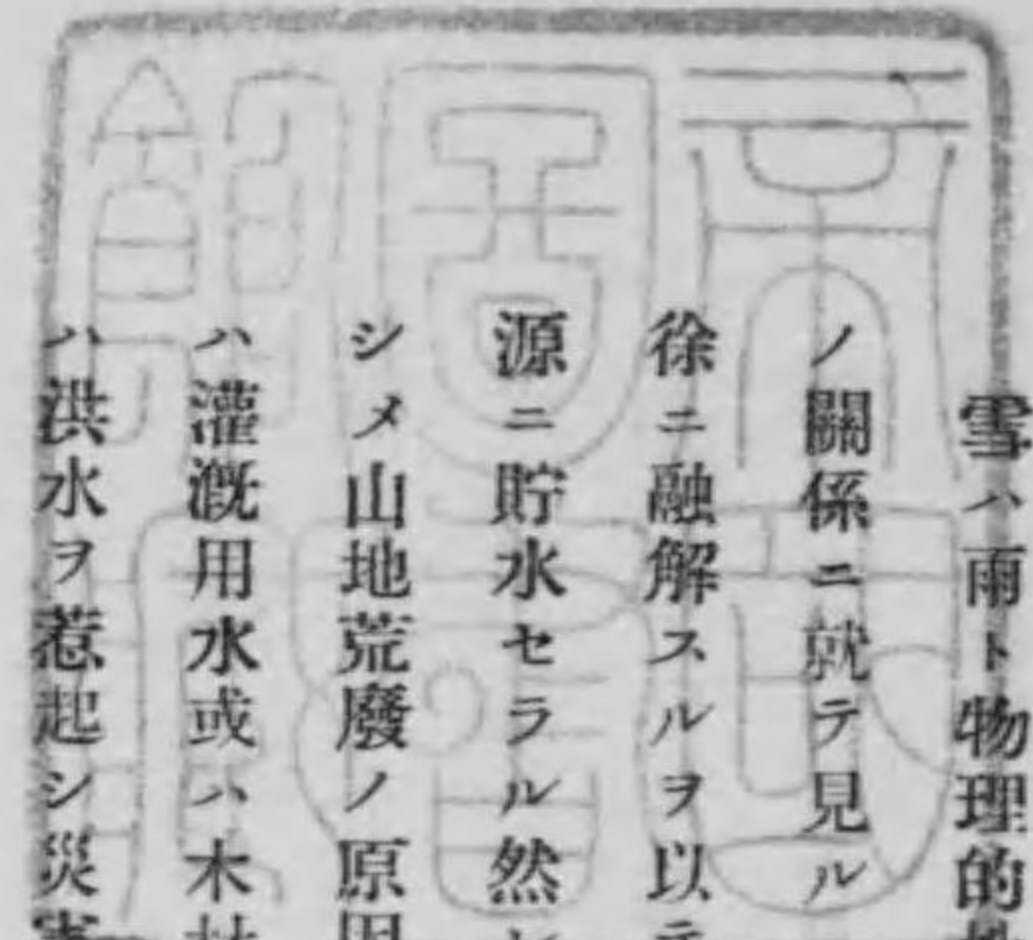 雪ハ雨ト物理的
ノ關係ニ就テ見ル
徐ニ融解スルヲ以テ
源ニ貯水セラル然
シメ山地荒廢ノ原因
ハ灌漑用水或ハ木材
ハ洪水ヲ惹起シ災害